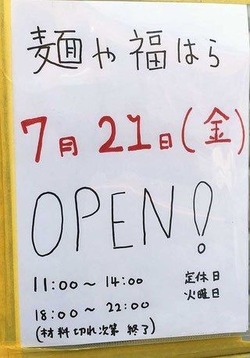 麺や福はら
7月21日(金)
OPEN!
11:00〜14:00 定休日
18:00〜22:00 火曜日
(材料切れ次第 終了)